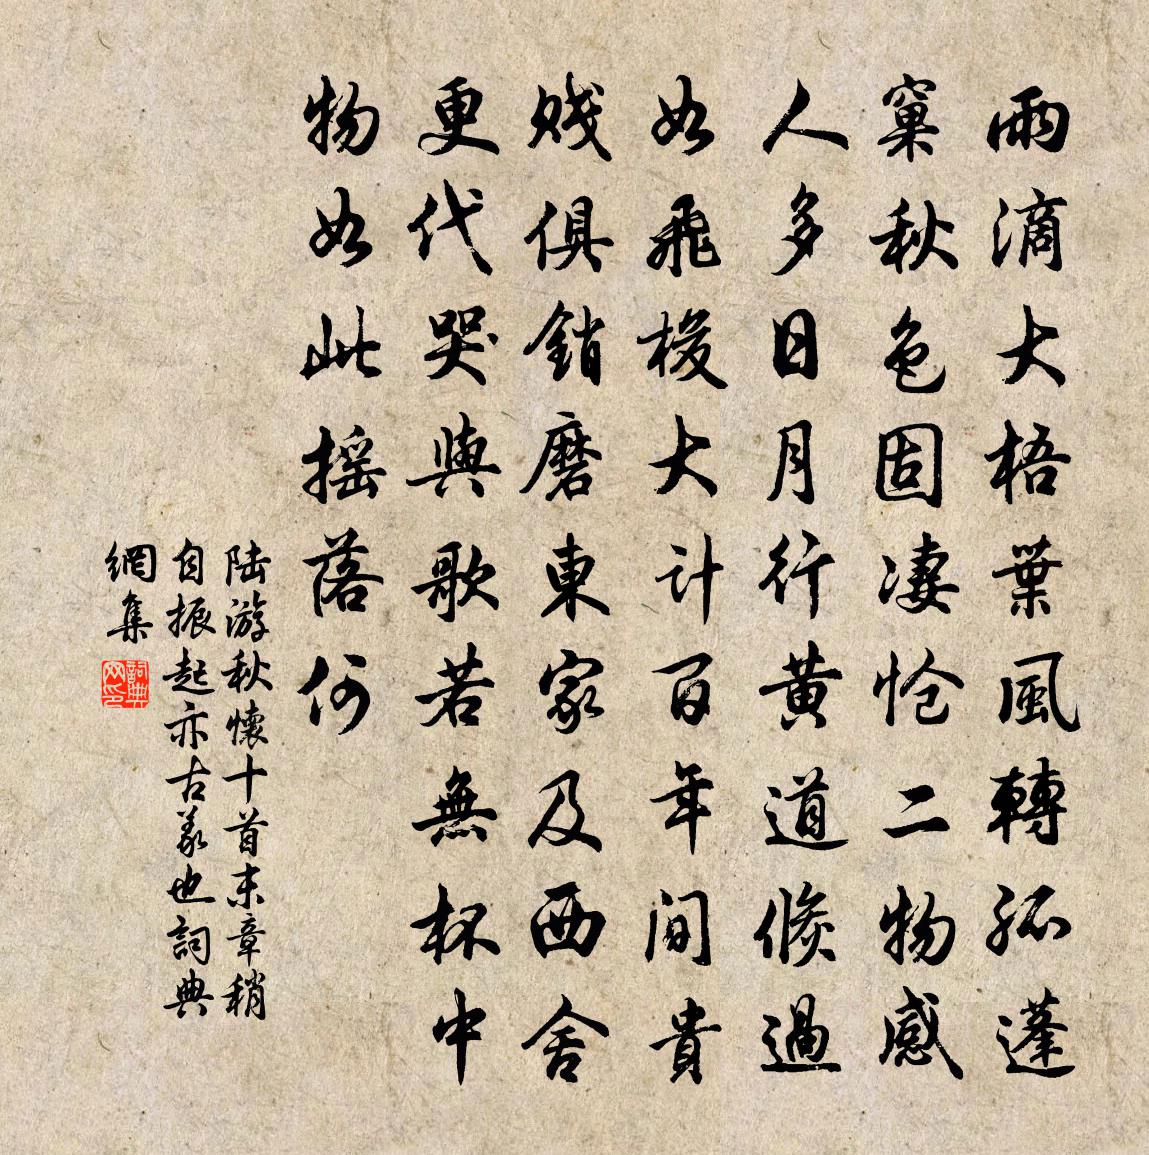 雨滴大梧葉風轉孤蓬
窠秋色固凄愴二物感
人多日月行黄道倐過
如飛梭大計百年間貴
賤俱銷磨東家及西舍
更代哭與歌若無杯中
物如此摇落何
陆游秋懷十首末章稍
自振起亦古義也詞典
網集
詞典网印